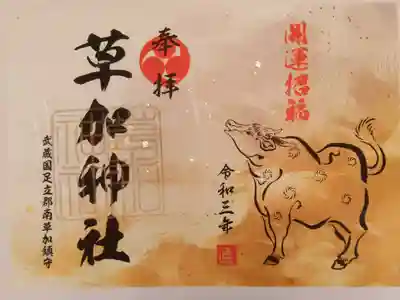 開運招福
奉拝
草加神社
武蔵国足立郡南草加鎮守
令和三年